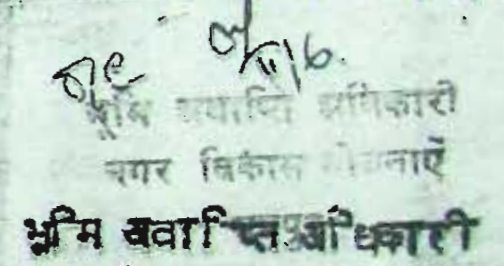 11/6.
भूमि अवाप्ति अधिकारी
नगर विकास योजनाएँ
भूमि अवाप्ति अधिकारी